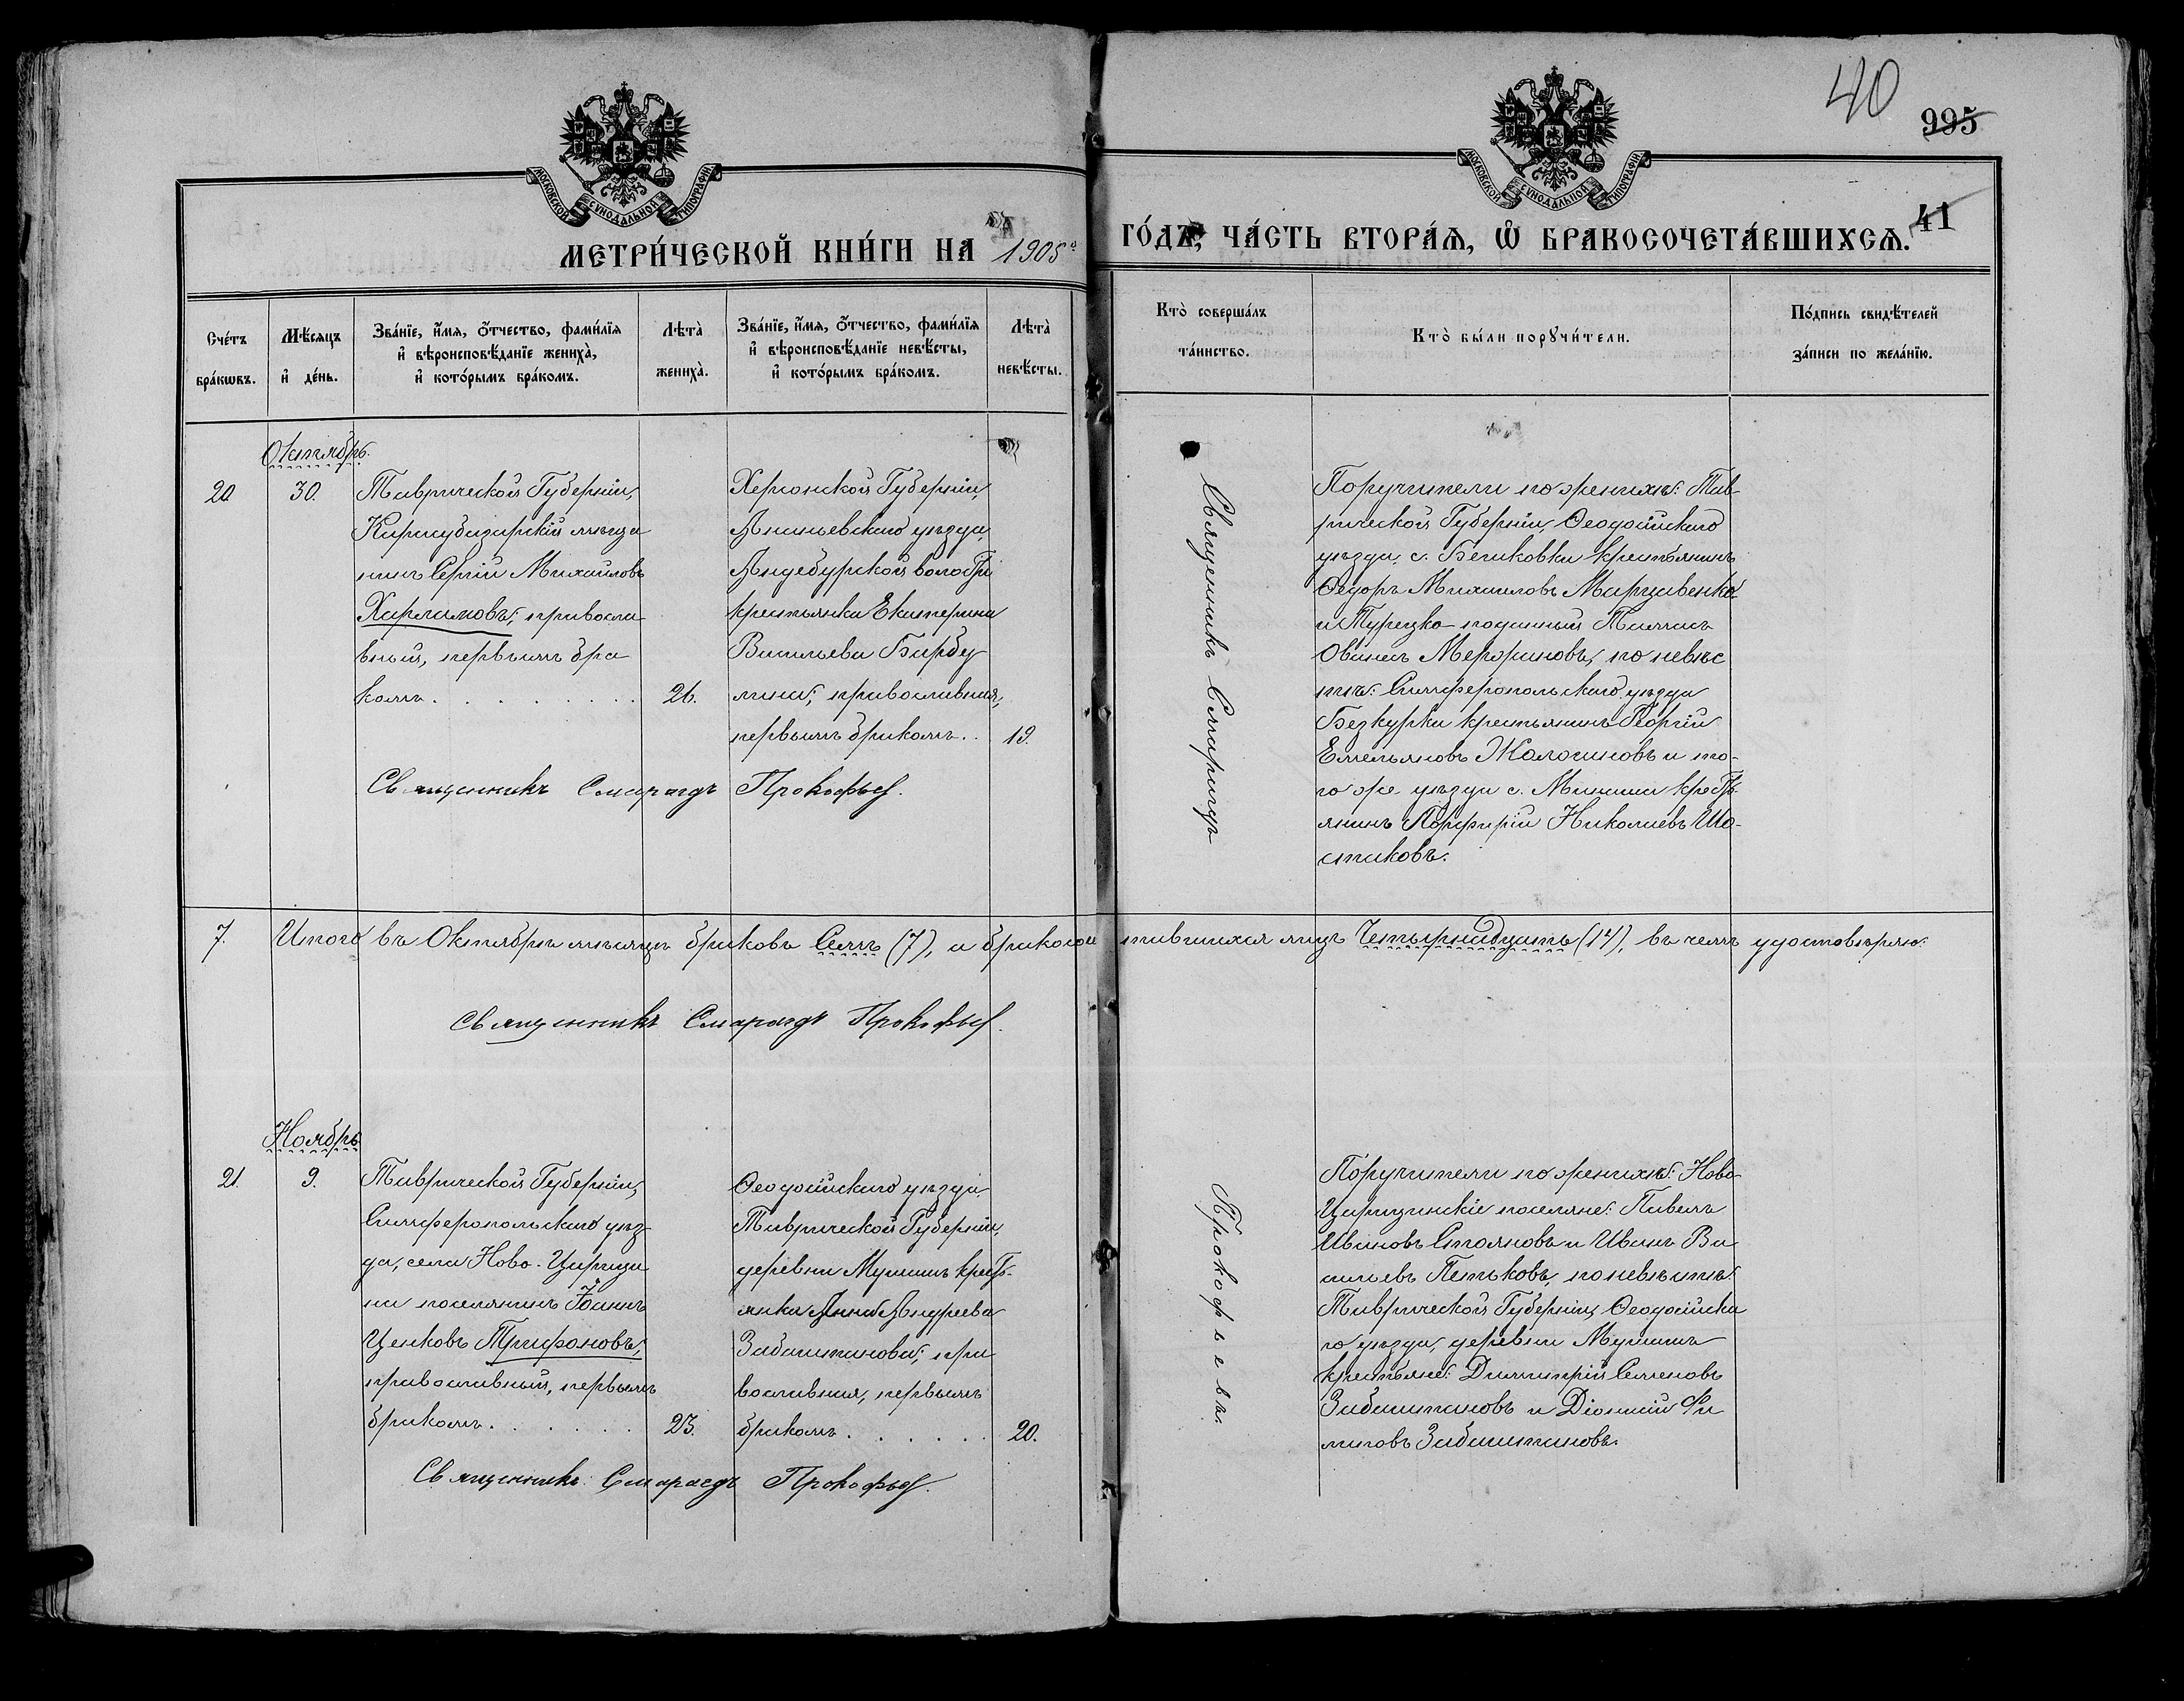 40
995
41
МОСКОВСКОЙ СѴНОДАЛЬНОЙ ТИПОГРАФІИ
МОСКОВСКОЙ СѴНОДАЛЬНОЙ ТИПОГРАФІИ
МЕТРИ́ЧЕСКОЙ КНИ́ГИ НА 1905 ГО́ДЪ, ЧА́СТЬ ВТОРА́Ѧ, Ѡ҆ БРАКОСОЧЕТА́ВШИХСѦ.
Сче́тъ бра́кѡвъ.
Мѣ́сѧцъ и҆ де́нь.
Зва́нїе, и҆́мѧ, о҆́тчество, фами́лїѧ
и҆ вѣроисповѣ́данїе жениха̀,
и҆ кото́рымъ бра́комъ.
Лѣта̀ жениха̀.
Зва́нїе, и҆́мѧ, о҆́тчество, фами́лїѧ
и҆ вѣроисповѣ́данїе невѣ́сты,
и҆ кото́рымъ бра́комъ.
Лѣта̀ невѣ́сты.
Кто̀ соверша́лъ
та́инство.
Кто̀ бы́ли порꙋчи́тели.
По́дпись свидѣ́телей
за́писи по жела́нїю.
Октябрь.
20
30.
Таврической Губерніи,
Карасубазарскій мѣща
нинъ Сергій Михайловъ
Харламовъ, правосла
вный, первымъ бра
комъ.
26.
Херсонской Губерніи,
Ананьевскаго уѣзда,
Андебурской волости
крестьянка Екатерина
Васильева Барбу
лина; православная,
первымъ бракомъ..
19.
Священникъ Смарагдъ Прокофьев.
Священникъ Смарагдъ
Поручители по женихѣ: Тав-
рической Губерніи, Ѳеодосійскаго
уѣзда, с. Бешковки крестьянинъ
Ѳедоръ Михаиловъ Марцавенко
и Турецко-поданный
Ованесъ по невѣс
тѣ: Симферопольскаго уѣзда
крестьянинъ Георгій
Емельяновъ и то-
го же уѣзда с. крест
янинъ Порфирій Николаевъ Шо-
стиковъ.
7. Итого въ Октябрѣ мѣсяцѣ браковъ Семь (7), а бракосочетавшихся лицъ Четырнадцать (14), въ чемъ удостовѣряю:
Священникъ Смарагдъ Прокофьев.
Ноябрь
21.
9.
Таврической Губерніи,
Симферопольскаго уѣз
да, села Ново-Царици
на поселянинъ Іоаннъ
Ценковъ Трифоновъ,
православный, первымъ
бракомъ.
23.
Ѳеодосійскаго уѣзда,
Таврической Губерніи,
деревни крест
янка Анна Андреева
Забаштанова, пра
вославная, первымъ
бракомъ.
20.
Священникъ Смарагдъ Прокофьев.
Прокофьевъ.
Поручители по женихѣ: Ново-
Царицинскіе поселяне: Павелъ
Ивановъ Стояновъ и Иванъ Ва
сильевъ Петковъ, по невѣстѣ:
Таврической Губерніи, Ѳеодосійска
го уѣзда, деревни
крестьяне: Димитрій Семеновъ
Забаштановъ и Діонисій Фи
липовъ Забаштановъ.